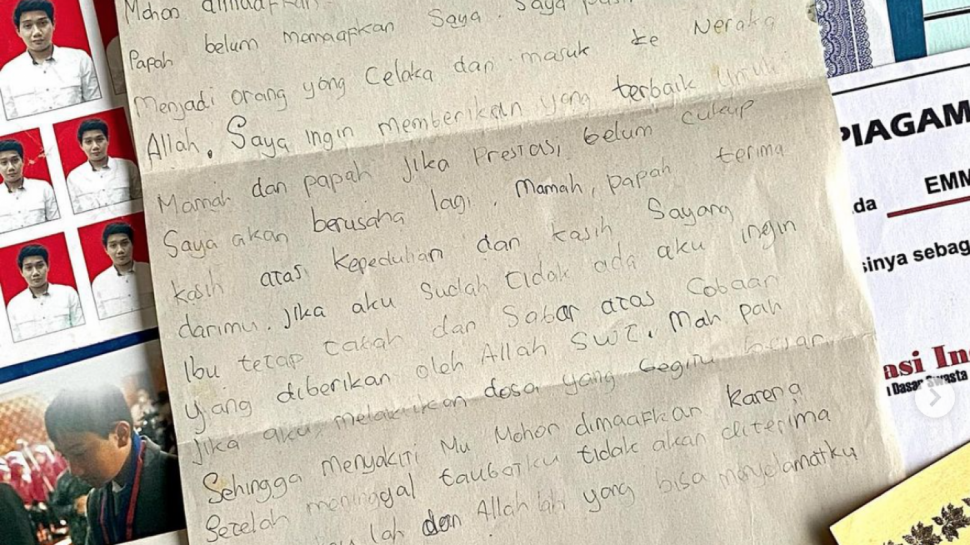 Mohon dimaafkan.
Papah belum memaafkan Saya. Saya
Menjadi orang yang Celaka dan masuk ke Neraka
Allah. Saya ingin memberikan yang terbaik untuk
Mamah dan papah jika Prestasi belum cukup
Saya akan berusaha lagi. Mamah, papah terima
kasih atas kepedulian dan kasih Sayang
darimu. Jika aku sudah tidak ada aku ingin
Ibu tetap tabah dan Sabar atas Cobaan
yang diberikan oleh Allah SWT. Mah pah
jika aku melakukan dosa yang begitu
Sehingga menyakiti Mu Mohon dimaafkan karena
Setelah meninggal taubatku tidak akan diterima
lah dan Allah lah yang bisa menyelamatku
PIAGAM
da EMM
sinya sebag
asi In
Dasar Swasta